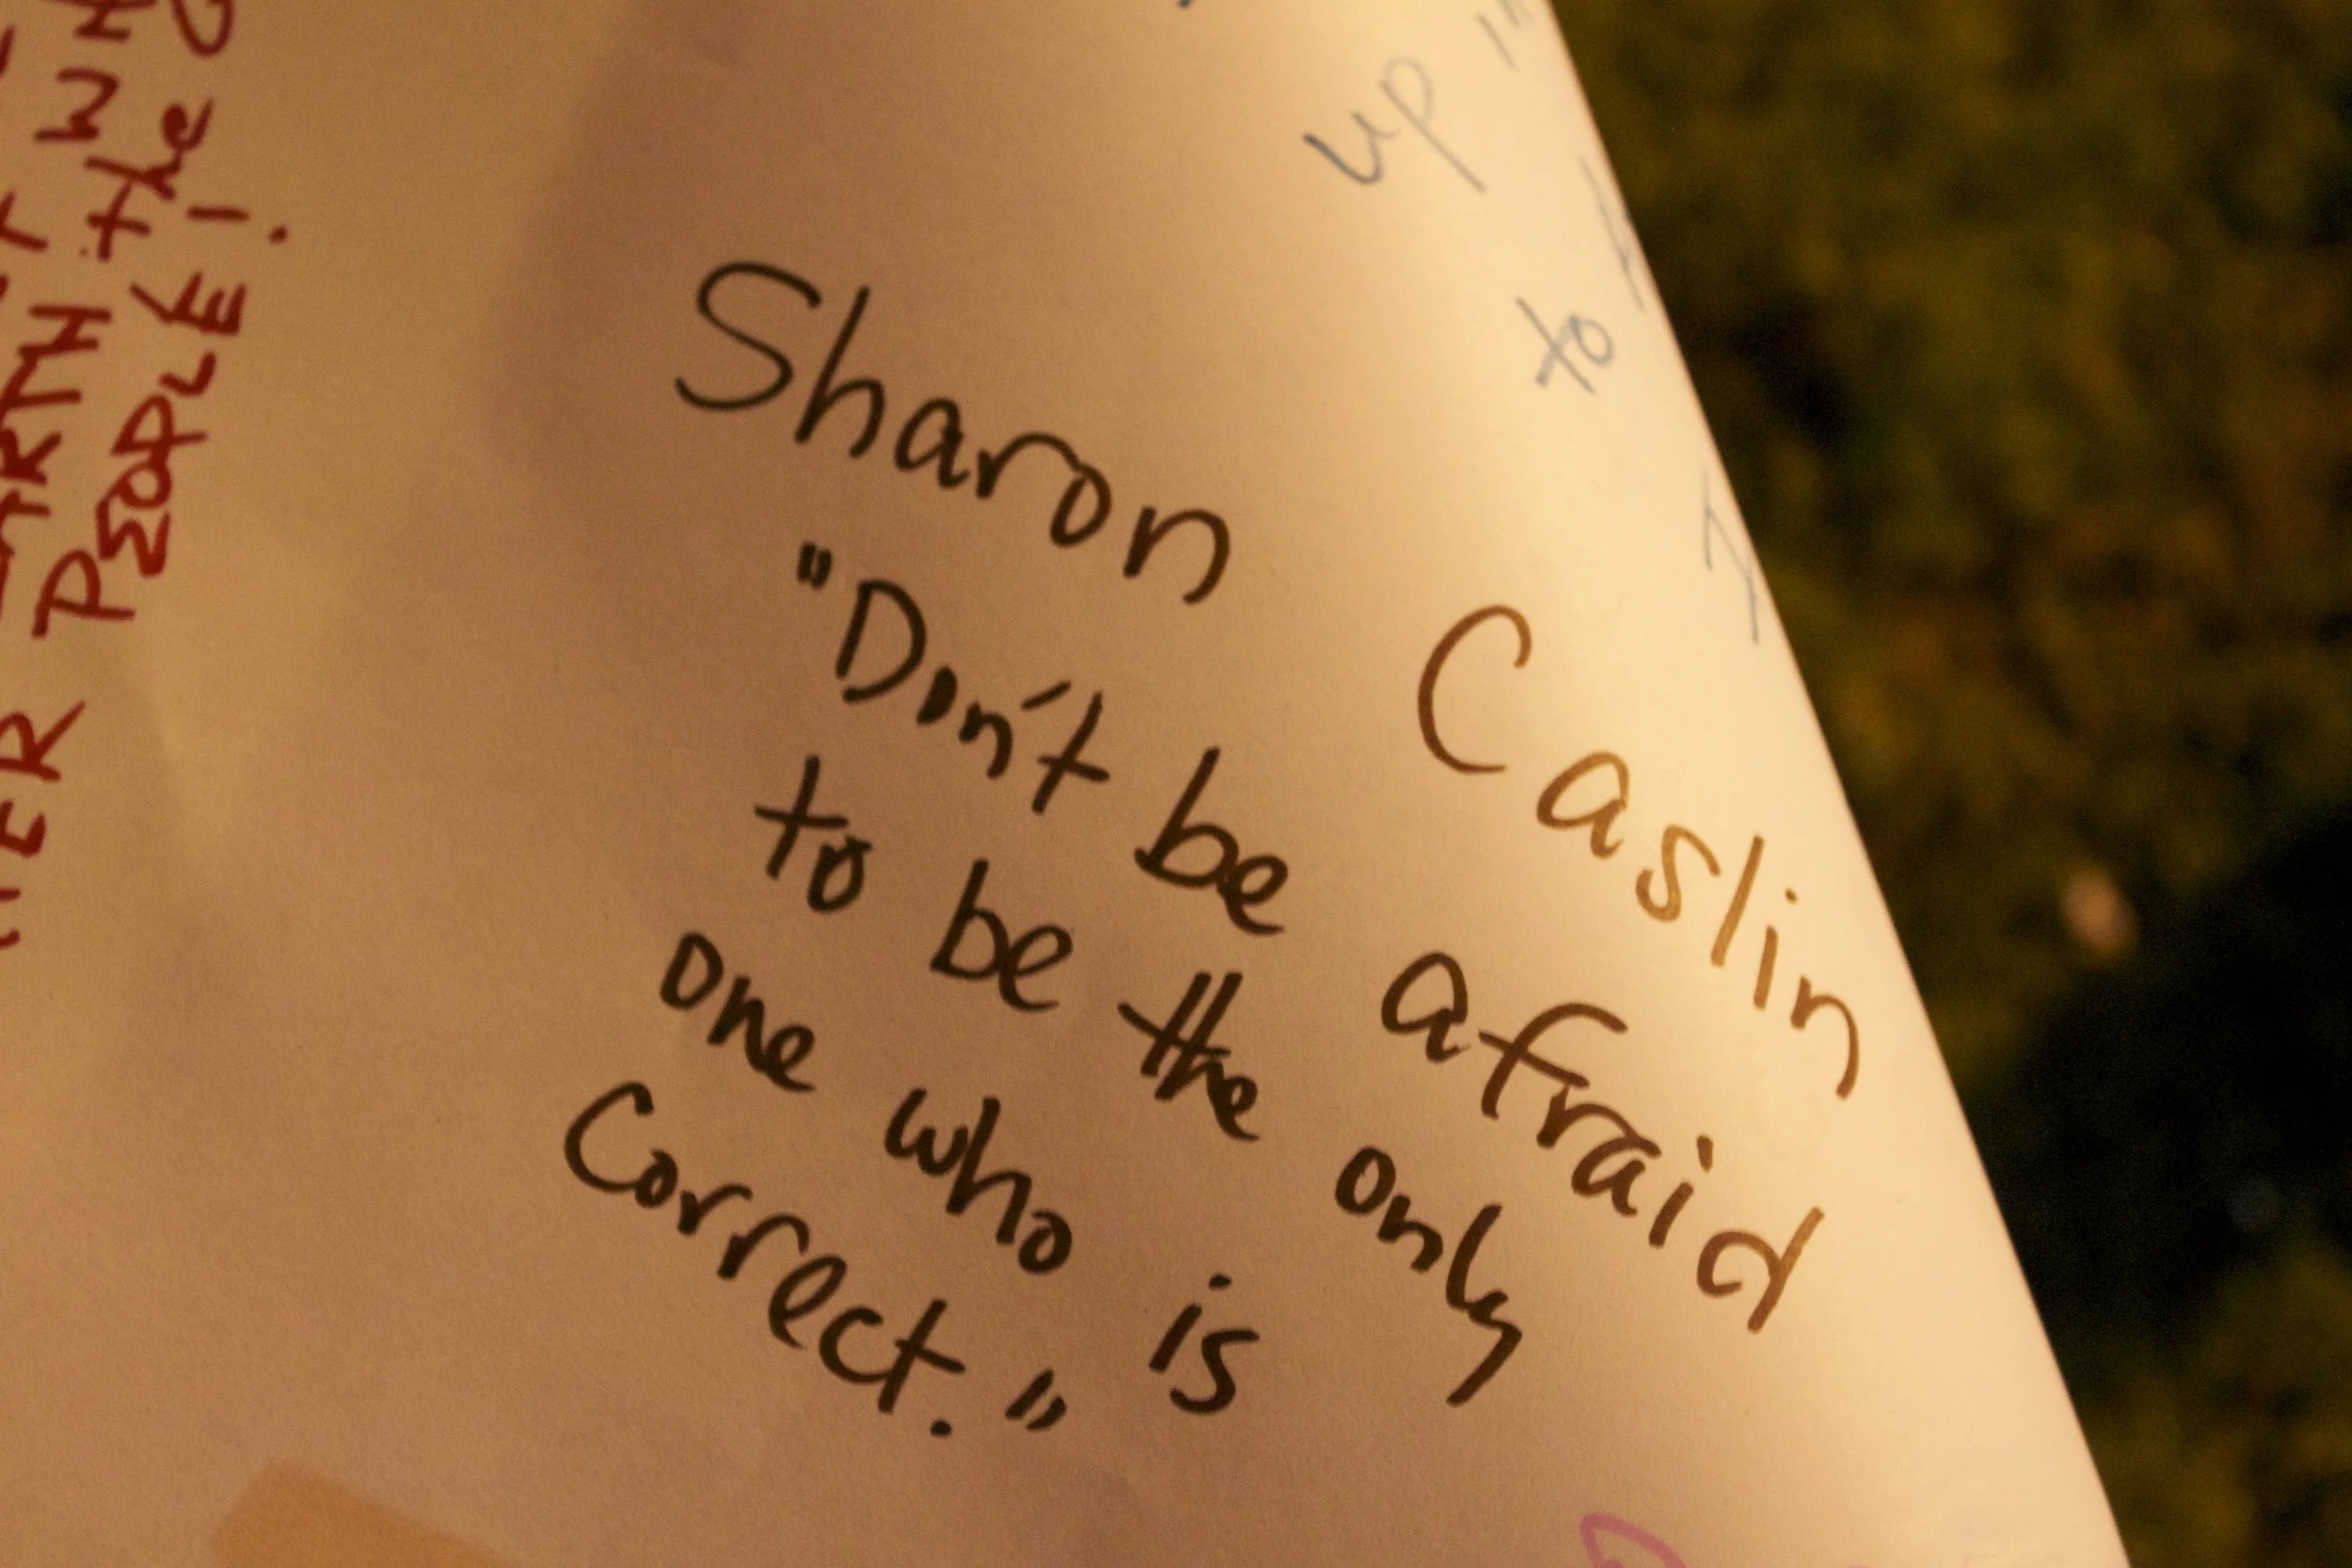 the
PEOPLE!
up
to
Sharon Caslin
"Don't be afraid
to be the only
one who is
Correct."